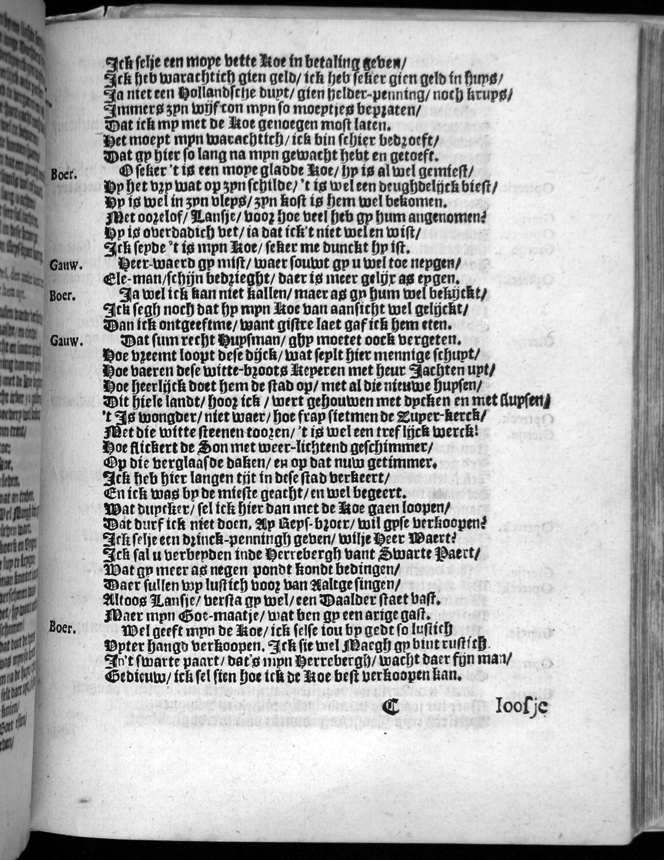 Ick selje een moye vette Koe in betaling geven/
Ick heb warachtich gien geld/ ick heb seker gien geld in huys/
Ja niet een Hollandsche duyt/ gien helder-penning/ noch kruys/
Immers zyn wijf con myn so moeytjes bepraten/
Dat ick my met de Koe genoegen most laten.
Het moeyt myn warachtich/ ick bin schier bedroeft/
Dat gy hier so lang na myn gewacht hebt en getoeft.
Boer. O seker 't is een moye gladde Koe/ hy is al wel gemiest/
Hy het vry wat op zyn schilde/ 't is wel een deughdelijck biest/
Hy is wel in zyn vleys/ zyn kost is hem wel bekomen.
Met oorelof/ Lansje/ voor hoe veel heb gy hum angenomen?
Hy is overdadich vet/ ia dat ick't niet welen wist/
Ick seyde 't is myn Koe/ seker me dunckt hy ist.
Gauw. Heer-waerd gy mist/ waer souwt gy u wel toe neygen/
Ele-man/ schijn bedrieght/ daer is meer gelijx as eygen.
Boer. Ja wel ick kan niet kallen/ maer as gy hum wel bekijckt/
Ick segh noch dat hy myn Koe van aansicht wel gelijckt/
Dan ick ontgeeftme/ want gistre laet gaf ick hem eten.
Gauw. Dat sum recht Huysman/ ghy moetet oock vergeten.
Hoe vreemt loopt dese dijck/ wat seylt hier mennige schuyt/
Hoe vaeren dese witte-broots Keyeren met heur Jachten uyt/
Hoe heerlijck doet hem de stad op/ met al die nieuwe huysen/
Dit hiele landt/ hoor ick/ wert gehouwen met dycken en met sluysen/
't Is wongder/ niet waer/ hoe fray sietmen de Zuyer-kerck/
Met die witte steenen tooren/ 't is wel een treflijck werck!
Hoe flickert de Son met weer-lichtend geschimmer/
Op die verglaasde daken/ en op dat nuw getimmer.
Ick heb hier langen tijt in dese stad verkeert/
En ick was by de mieste geacht/ en wel begeert.
Wat duycker/ sel ick hier dan met de Koe gaen loopen/
Dat durf ick niet doen. Ay Reys-broer/ wil gyse verkoopen?
Ick selje een drinck-penningh geven/ wilje Heer Waert?
Ick sal u verbeyden inde Herrebergh vant Swarte Paert/
Wat gy meer as negen pondt kondt bedingen/
Daer sullen wy lustich voor van Aaltge singen/
Altoos Lansje/ versta gy wel/ een Daalder staet vast.
Maer myn Goe-maatje/ wat ben gy een arige gast.
Boer. Wel geeft myn de Koe/ ick selse iou by gedt so lustich
Uyter hangd verkoopen. Ick sie wel Maegh gy bint rustich
In't swarte paart/ dat's myn Herrebergh/ wacht daer fijn man/
Gedieuw/ ick sel sien hoe ick de Koe best verkoopen kan.
C Ioosje